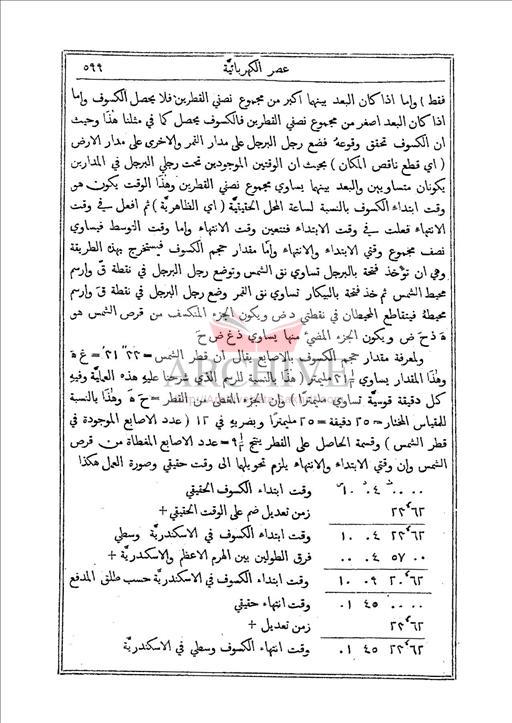 عصر الكهربائيَّة ٥٩٩
فقط) واما اذا كان البعد بينهما اكبر من مجموع نصفي القطرين فلا يحصل الكسوف واما
اذا كان البعد اصغر من مجموع نصفي القطرين فالكسوف يحصل كما في مثلنا هذا وحيث
ان الكسوف تحقق وقوعهُ فضع رجل البرجل على مدار القمر والاخرى على مدار الارض
(اي قطع ناقص المكان) بحيث ان الوقتين الموجودين تحت رجلي البرجل في المدارين
يكونان متساويين والبعد بينهما يساوي مجموع نصفي القطرين وهذا الوقت يكون هو
وقت ابتداء الكسوف بالنسبة لساعة المحل الحقيقيَّة (اي الظاهريَّة) ثم افعل في وقت
الانتهاء كما فعلت في وقت الابتداء فتتعين وقت الانتهاء واما وقت التوسط فيساوي
نصف مجموع وقتي الابتداء والانتهاء وامَّا مقدار حجم الكسوف فيستخرج بهذه الطريقة
وهي ان تؤخذ فتحة بالبرجل تساوي نق الشمس وتوضع رجل البرجل في نقطة ق وارسم
محيط الشمس ثم خذ فتحة بالبيكار تساوي نق القمر وضع رجل البرجل في نقطة ق وارسم
محيطهُ فيتقاطع المحيطان في نقطتي د ض ويكون الجزء المنكسف من قرص الشمس هو
ويكون الجزء المضيء منها يساوي
ولمعرفة مقدار حجم الكسوف بالاصابع يقال ان قطر الشمس =
وهذا المقدار يساوي مليمترا (هذا بالنسبة للرسم الذي شرحنا عليهِ هذه العمليَّة وفيهِ
كل دقيقة قوسيَّة تساوي مليمترًا) وان الجزء المغطى من القطر = ح ه وهذا بالنسبة
للمقياس المختار = ٢٥ دقيقة = ٢٥ مليمترًا وبضربهِ في ١٢ (عدد الاصابع الموجودة في
قطر الشمس) وقسمة الحاصل على القطر ينتج = عدد الاصابع المغطاة من قرص
الشمس وان وقتي الابتداء والانتهاء يلزم تحويلهما الى وقت حقيقي وصورة العمل هكذا
وقت ابتداء الكسوف الحقيقي ١٠ ٠٤ ٠٠ ٠٠
زمن تعديل ضم على الوقت الحقيقي +
وقت ابتداء الكسوف في الاسكندريَّة وسطي ١٠ ٠٤
فرق الطولين بين الهرم الاعظم والاسكندريَّة + ٠٠ ٠٤ ٥٧ ٠٠
وقت ابتداء الكسوف في الاسكندريَّة حسب طلق المدفع ١٠ ٠٩
وقت انتهاء حقيقي ٠١ ٤٥ ٠٠ ٠٠
زمن تعديل +
وقت انتهاء الكسوف وسطي في الاسكندريَّة ٠١ ٤٥
ARCHIVE